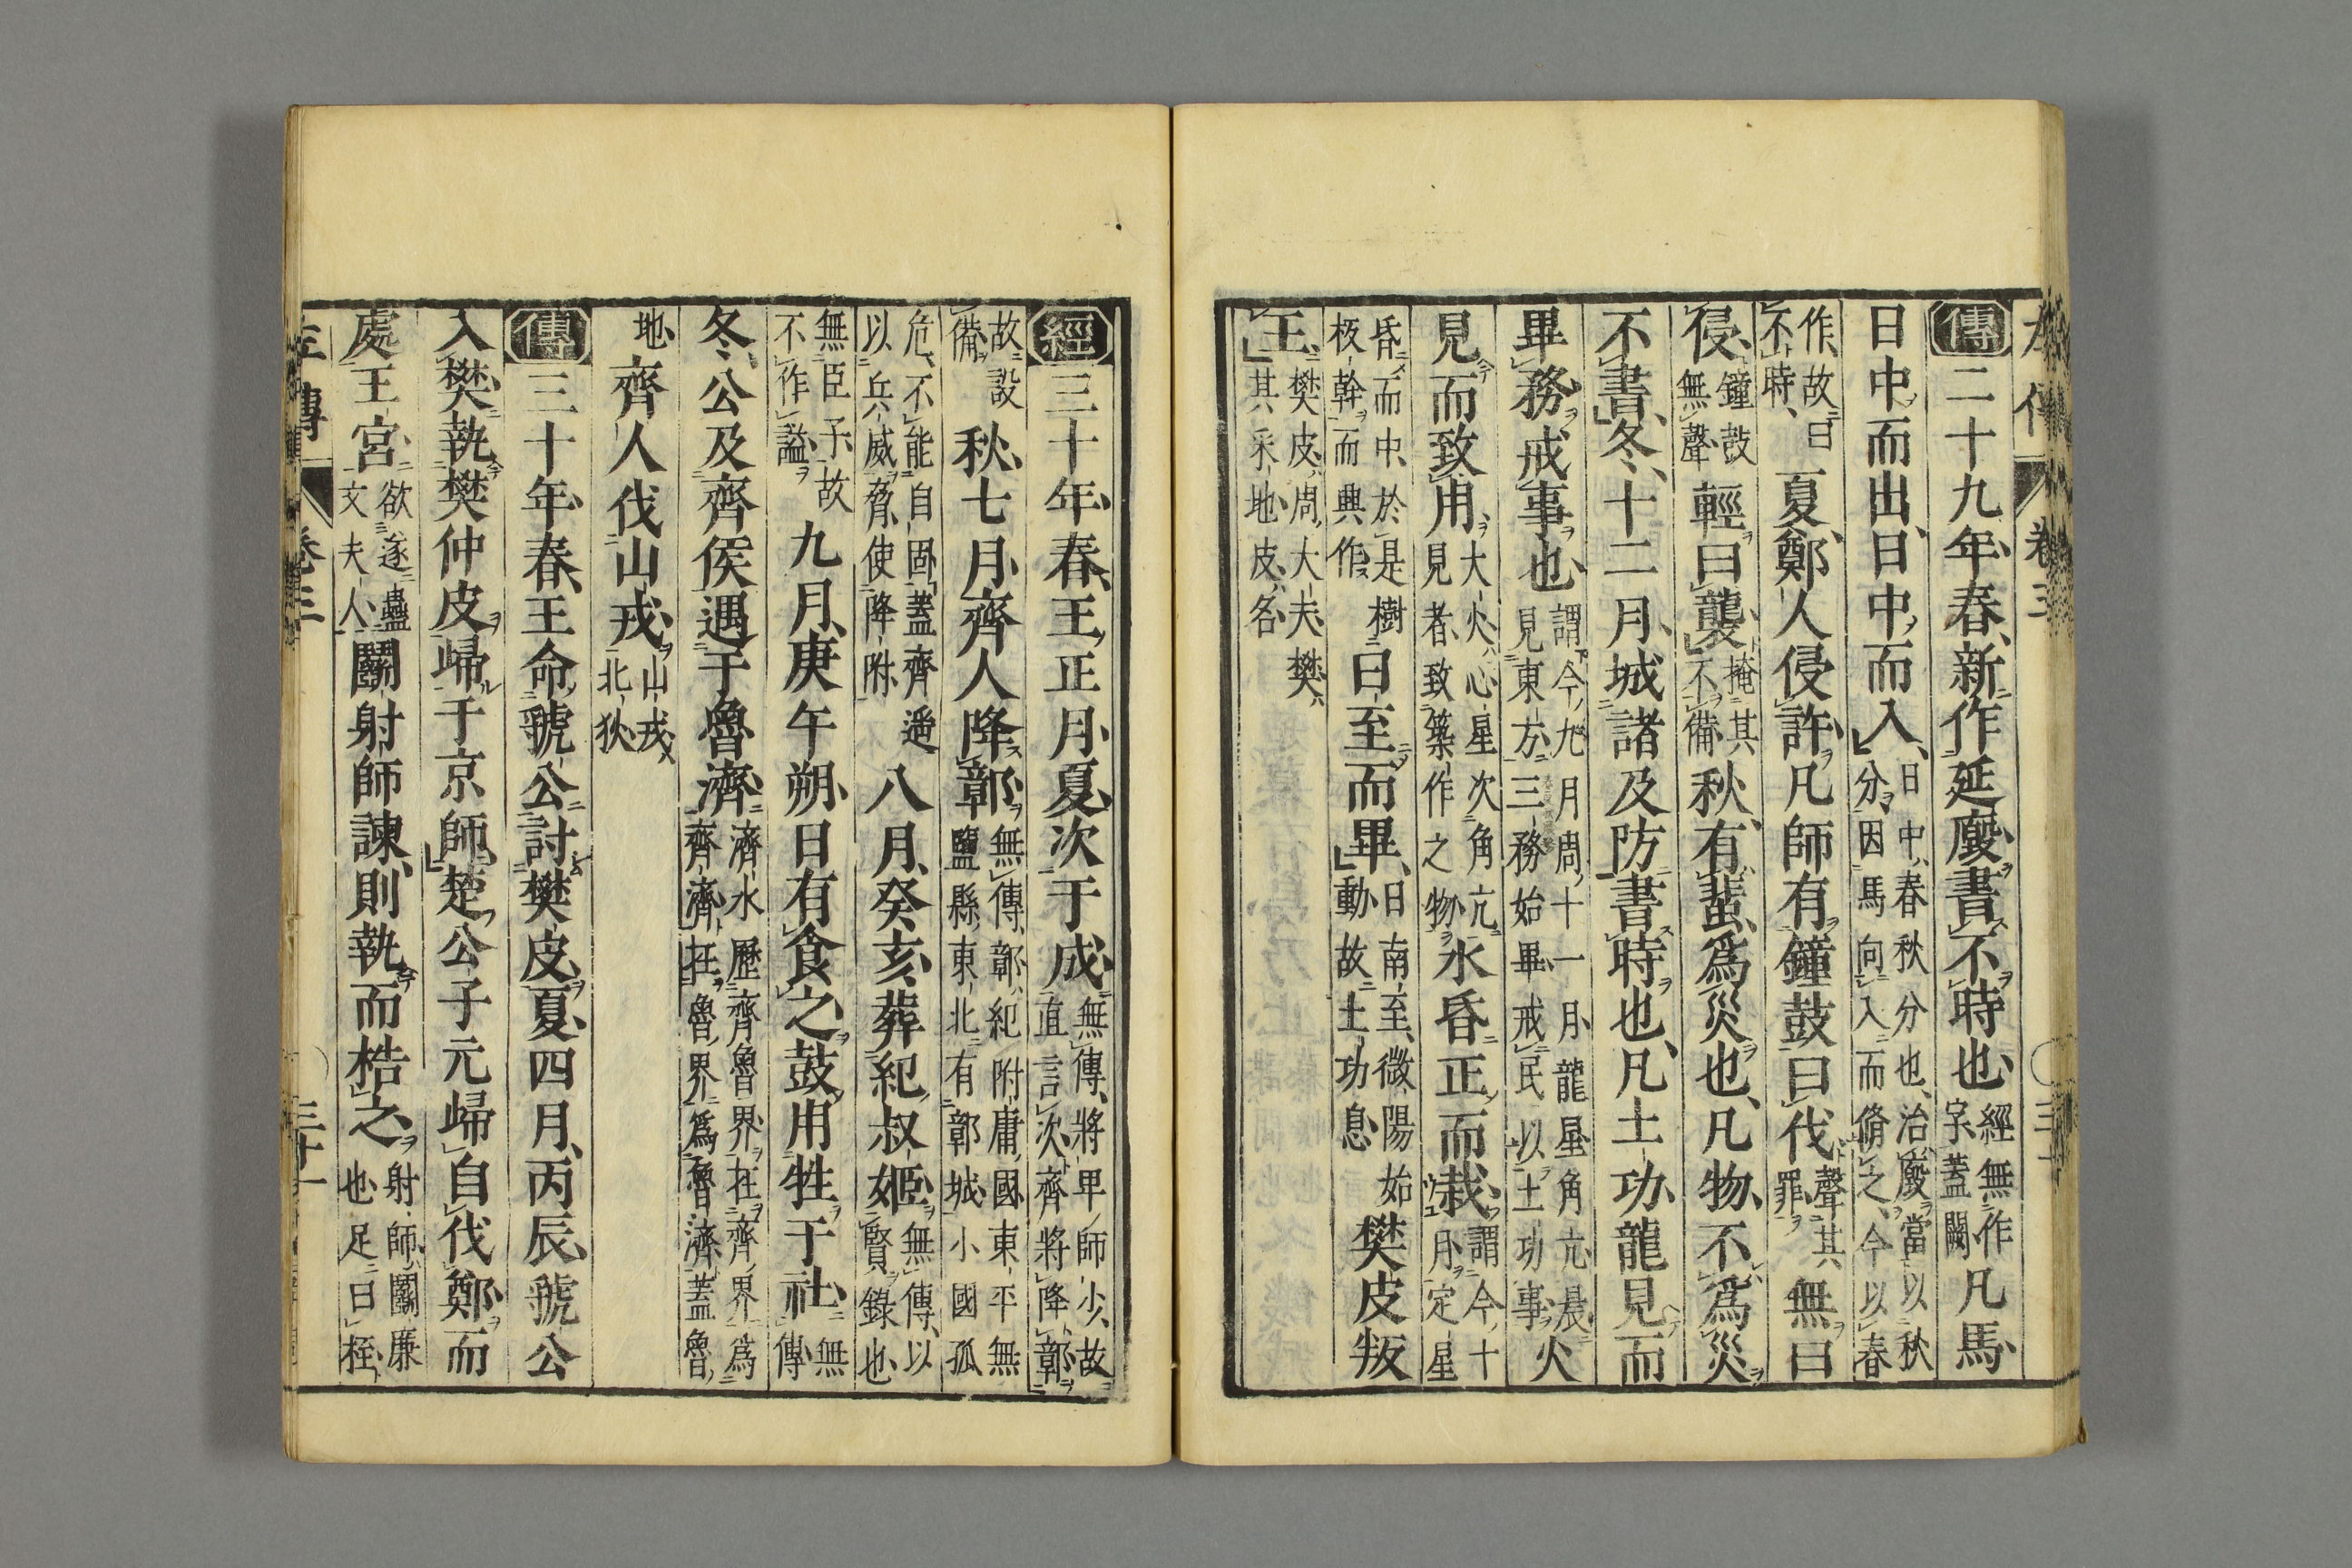 傳二十九年春新作延廏書不時也經無作字蓋闕凡馬
日中而出日中而入日中春秋分也治廏當以秋分因馬向入而脩之今以春
作故曰不時夏鄭人侵許凡師有鐘鼓曰伐聲其罪無曰
侵鐘鼓無聲輕曰襲掩其不備秋有蜚爲災也凡物不爲災
不書冬十二月城諸及防書時也凡土功龍見而
畢務戒事也謂今九月周十一月龍星角亢晨見東方三務始畢戒民以土功事火
見而致用大火心星次角亢見者致築作之物水昏正而栽謂今十月定星
昏而中於是樹板幹而興作日至而畢日南至微陽始動故土功息樊皮叛
王樊皮周大夫樊其采地皮名
經三十年春王正月夏次于成無傳將卑師少故直言次齊將降鄣
故設備秋七月齊人降鄣無傳鄣紀附庸國東平無鹽縣東北有鄣城小國孤
危不能自固蓋齊遥以兵威脅使降附八月癸亥葬紀叔姬無傳以賢錄也
無臣子故不作謚九月庚午朔日有食之鼓用牲于社無傳
冬公及齊侯遇于魯濟濟水歷齊魯界在齊界爲齊濟在魯界爲魯濟蓋魯
地齊人伐山戎山戎北狄
傳三十年春王命虢公討樊皮夏四月丙辰虢公
入樊執樊仲皮歸于京師楚公子元歸自伐鄭而
處王宮欲遂蠱文夫人鬭射師諫則執而梏之射師鬭廉也足曰桎
左傳 卷三 三十一